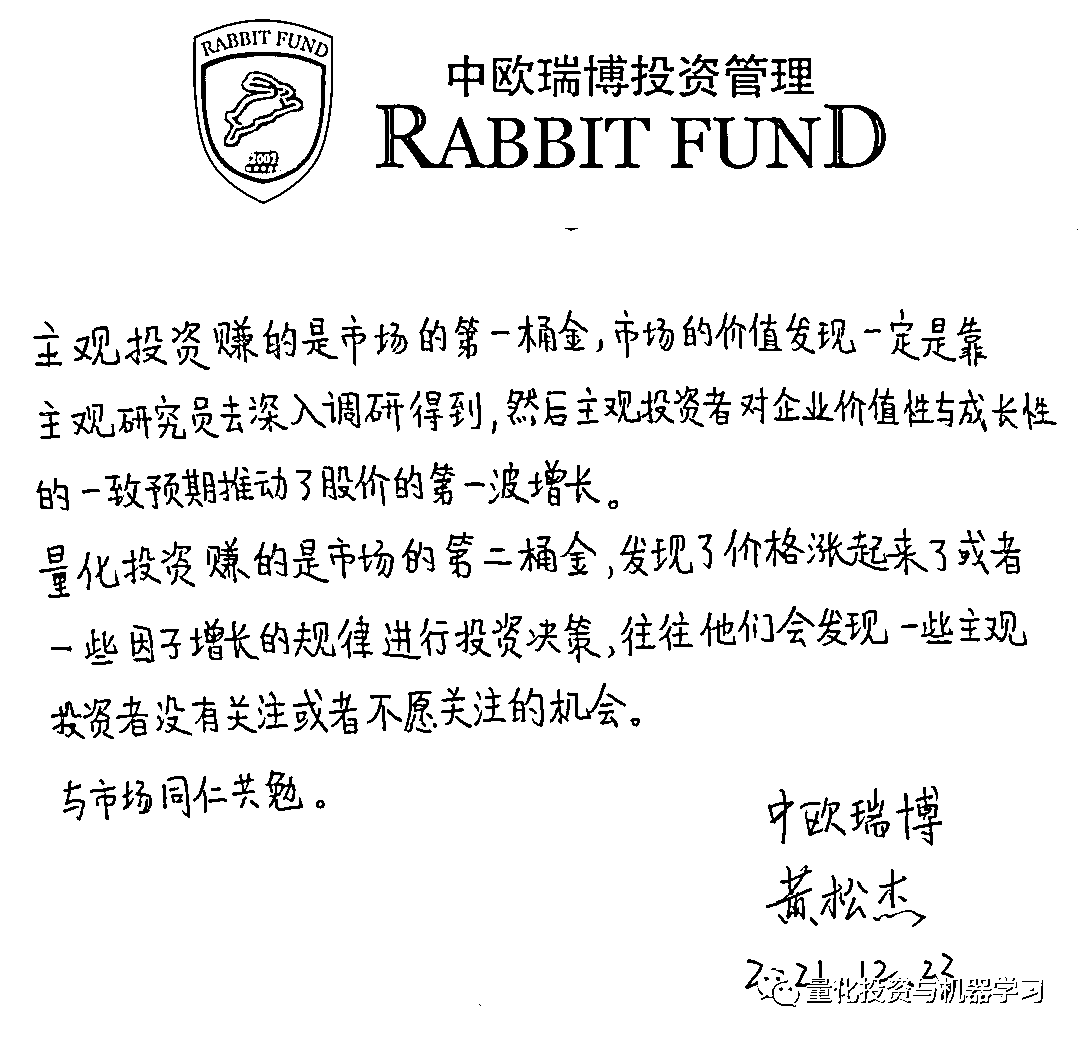 RABBIT FUND
2007
中欧瑞博投资管理
RABBIT FUND
主观投资赚的是市场的第一桶金,市场的价值发现一定是靠
主观研究员去深入调研得到,然后主观投资者对企业价值性与成长性
的一致预期推动了股价的第一波增长。
量化投资赚的是市场的第二桶金,发现了价格涨起来了或者
一些因子增长的规律进行投资决策,往往他们会发现一些主观
投资者没有关注或者不愿关注的机会。
与市场同仁共勉。
中欧瑞博
黄松杰
2021.12.23
量化投资与机器学习